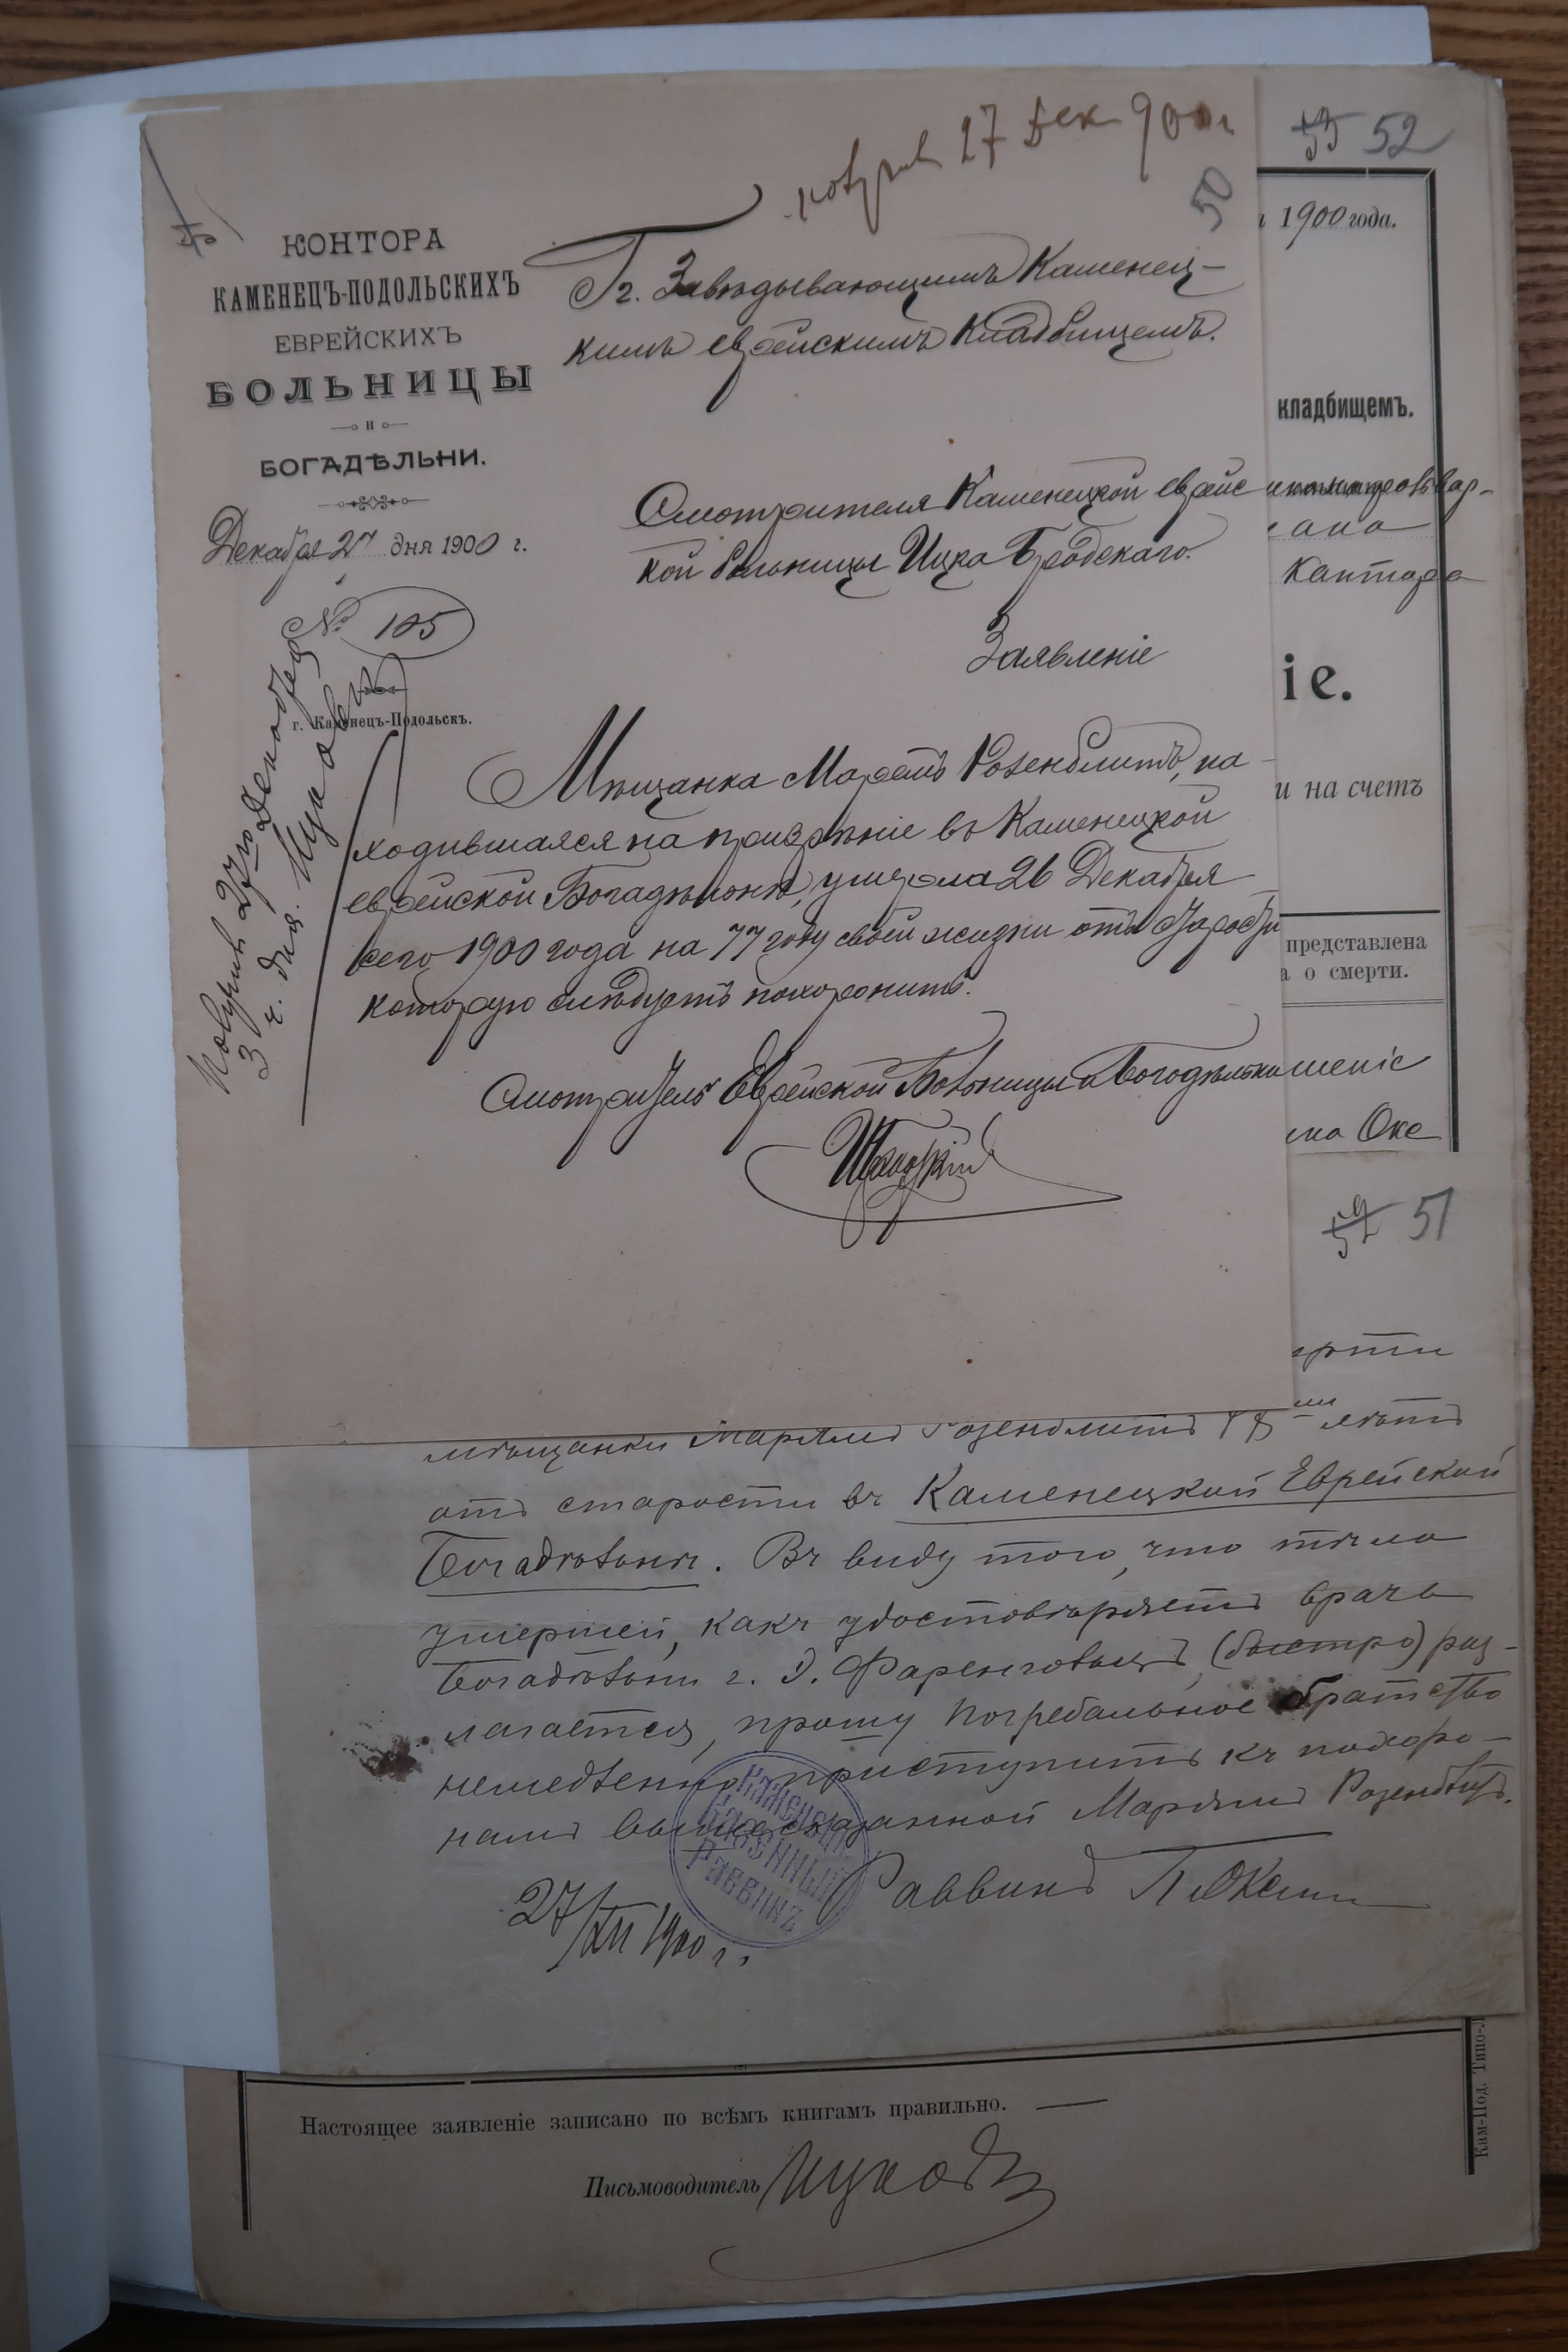 получ 27 Дек 900 г
50
КОНТОРА
КАМЕНЕЦЪ-ПОДОЛЬСКИХЪ
ЕВРЕЙСКИХЪ
БОЛЬНИЦЫ
И
БОГАДѢЛЬНИ.
Декабря 27 дня 1900 г.
№ 105
г. Каменецъ-Подольскъ.
Получ 27го Декабря
3 ч. дня.
Гг. Завѣдывающимъ Каменец-
кимъ еврейскимъ Кладбищемъ.
Смотрителя Каменецкой еврейс
кой больницы Ицка Бродскаго.
Заявленіе
Мѣщанка Маремъ Розенблитъ, на-
ходившаяся на призрѣніе въ Каменецкой
еврейской Богадѣльнѣ, умерла 26 Декабря
сего 1900 года на 77 году своей жизни отъ старости
которую слѣдуетъ похоронить.
Смотритель Еврейской Больницы и Богодѣльни
53 52
1900 года.
кладбищемъ.
Кантора
іе.
и на счетъ
представлена
а о смерти.
шеніе
Оке
52 51
ерти
мѣщанки Марьямъ Розенблитъ лѣтъ
отъ старости въ Каменецкой Еврейской
Богадѣльнѣ. Въ виду того, что тѣло
умершей, какъ удостовѣряетъ врачъ
Богадѣльни г. (быстро) раз-
лагается, прошу Погребальное братство
немедленно приступить къ похоро-
намъ вышесказанной Марьямъ Розенблитъ.
Раввинъ
27/XII 1900 г.
Каменецкій
Казенный
Раввинъ
Настоящее заявленіе записано по всѣмъ книгамъ правильно.
Письмоводитель
Кам-Под. Типо-Л